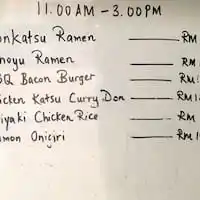 11.00AM - 3.00PM
onkatsu Ramen RM
noyu Ramen RM
BQ Bacon Burger RM
icken Katsu Curry Don RM
iyaki Chicken Rice RM
mon Onigiri RM